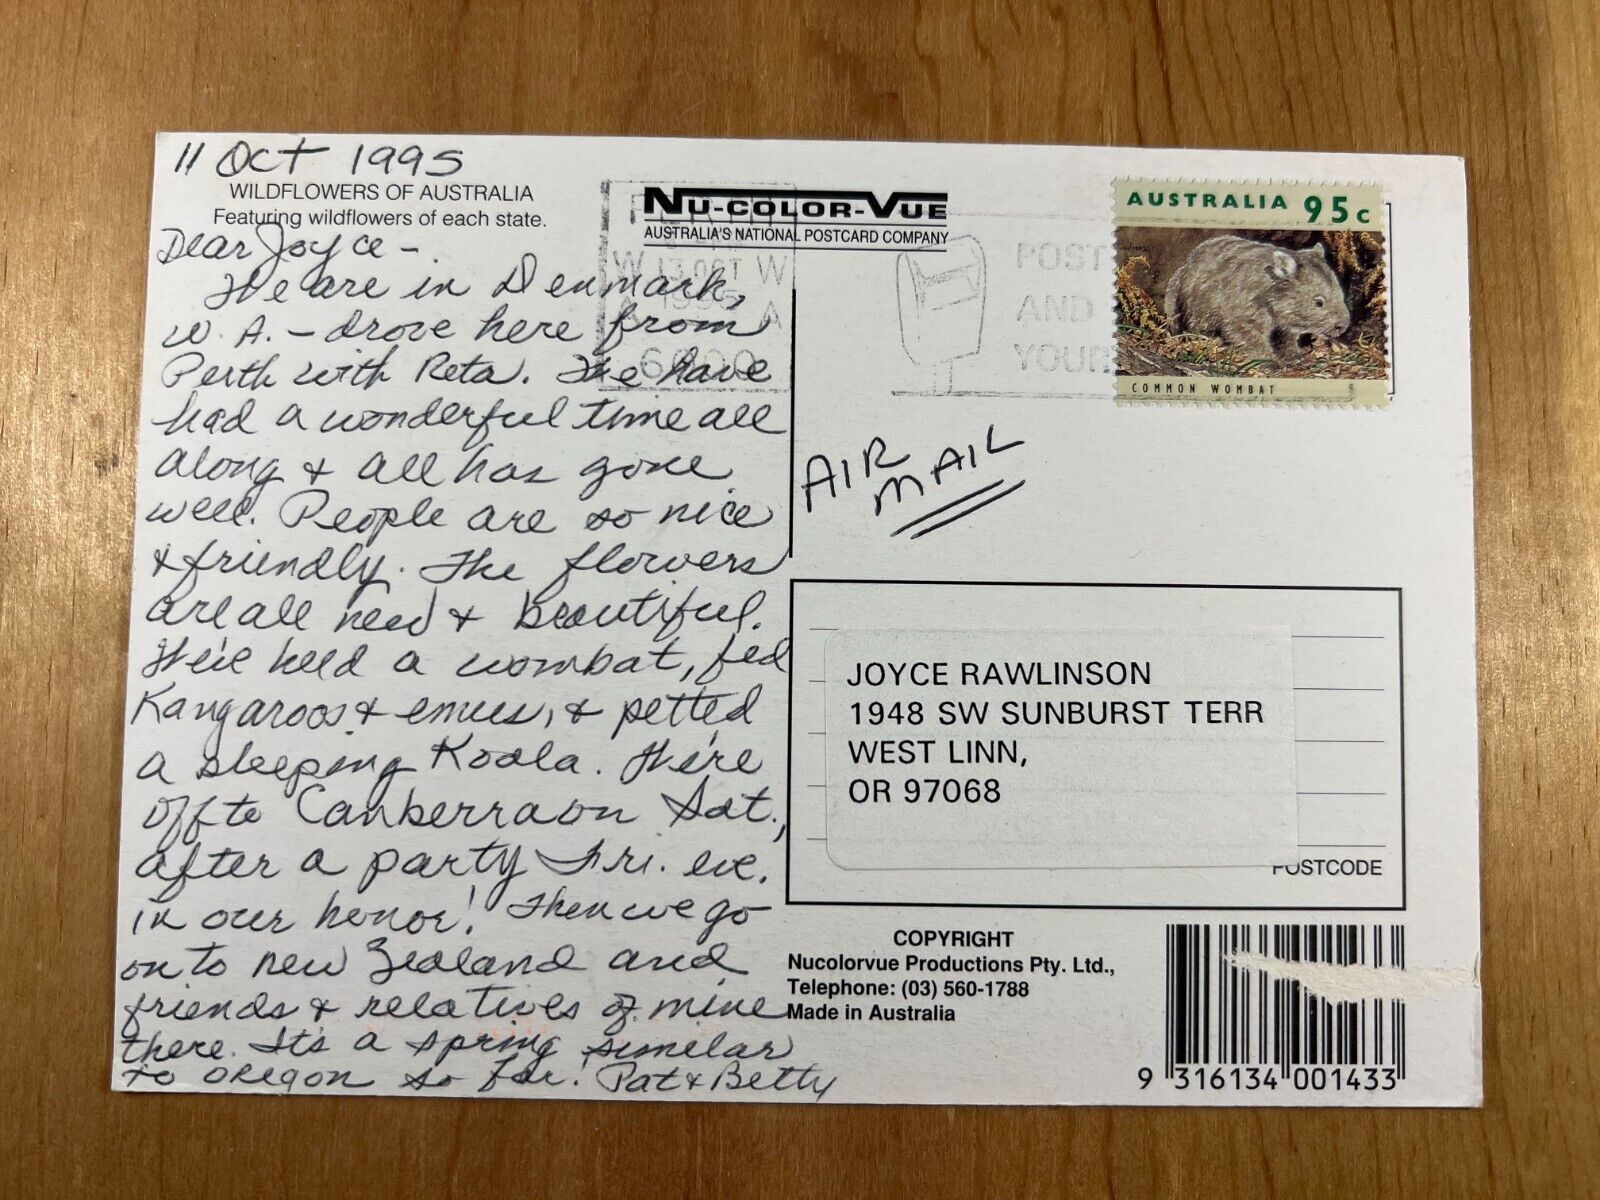 11 Oct 1995
WILDFLOWERS OF AUSTRALIA
Featuring wildflowers of each state.
Dear Joyce -
We are in Denmark,
W. A. - drove here from
Perth with Reta. We have
had a wonderful time all
along & all has gone
well. People are so nice
& friendly. The flowers
are all new & beautiful.
We've held a wombat, fed
Kangaroos & emus, & petted
a sleeping Koala. We're
off to Canberra on Sat.,
after a party Fri. eve.
in our honor! Then we go
on to New Zealand and
friends & relatives of mine
there. It's a spring similar
to Oregon so far! Pat & Betty
NU-COLOR-VUE
AUSTRALIA'S NATIONAL POSTCARD COMPANY
PERTH
W 13 OCT W
A 1995 A
6000
POST
AND
YOUR
AUSTRALIA 95c
COMMON WOMBAT
AIR
MAIL
JOYCE RAWLINSON
1948 SW SUNBURST TERR
WEST LINN,
OR 97068
POSTCODE
COPYRIGHT
Nucolorvue Productions Pty. Ltd.,
Telephone: (03) 560-1788
Made in Australia
9 316134 001433